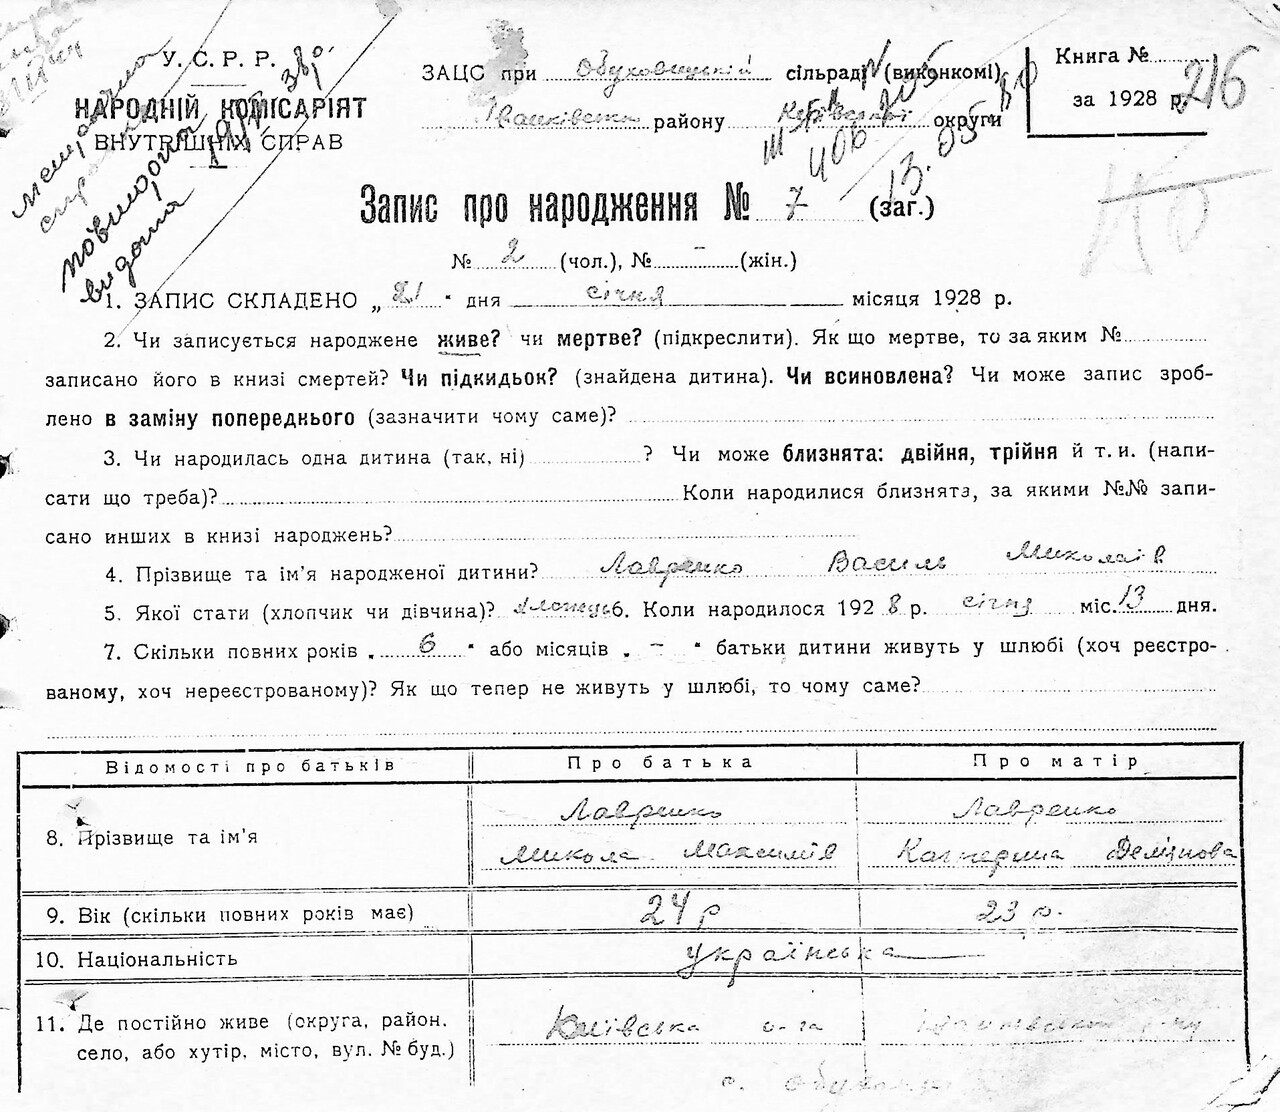 У. С. Р. Р.
НАРОДНІЙ КОМІСАРІЯТ
ВНУТРІШНІХ СПРАВ
повнолітня
видана
ЗАЦС при Обуховицькій сільраді (виконкомі)
Іванківського району Київської округи
Книга №
за 1928 р.
216
Запис про народження № 7 (заг.)
№ 2 (чол.), № - (жін.)
1. ЗАПИС СКЛАДЕНО „21“ дня січня місяця 1928 р.
2. Чи записується народжене живе? чи мертве? (підкреслити). Як що мертве, то за яким №
записано його в книзі смертей? Чи підкидьок? (знайдена дитина). Чи всиновлена? Чи може запис зроб-
лено в заміну попереднього (зазначити чому саме)?
3. Чи народилась одна дитина (так, ні) ? Чи може близнята: двійня, трійня й т. и. (напи-
сати що треба)? Коли народилися близнята, за якими №№ запи-
сано инших в книзі народжень?
4. Прізвище та ім'я народженої дитини? Лавренко Василь Миколаїв
5. Якої стати (хлопчик чи дівчина)? хлопець 6. Коли народилося 1928 р. січня міс. 13 дня.
7. Скільки повних років „6“ або місяців „-“ батьки дитини живуть у шлюбі (хоч реєстро-
ваному, хоч нереєстрованому)? Як що тепер не живуть у шлюбі, то чому саме?
Відомості про батьків Про батька Про матір
8. Прізвище та ім'я Лавренко Микола Максимів Лавренко Катерина Демянова
9. Вік (скільки повних років має) 24 р 23 р.
10. Національність українська
11. Де постійно живе (округа, район, Київська о-га
село, або хутір, місто, вул. № буд.)